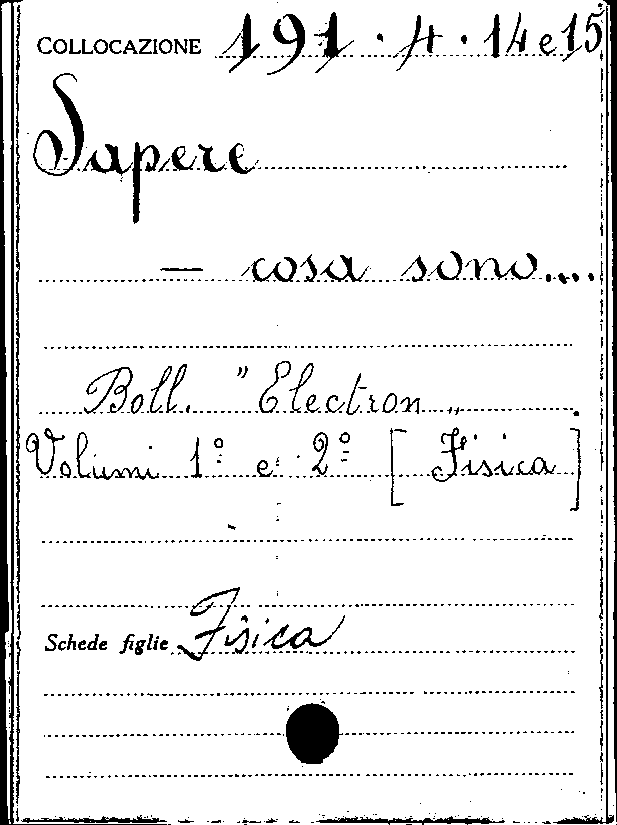 COLLOCAZIONE 191 · 4 · 14 e 15
Sapere
— cosa sono....
Boll. "Electron„.
Volumi 1° e 2° [Fisica]
Schede figlie Fisica